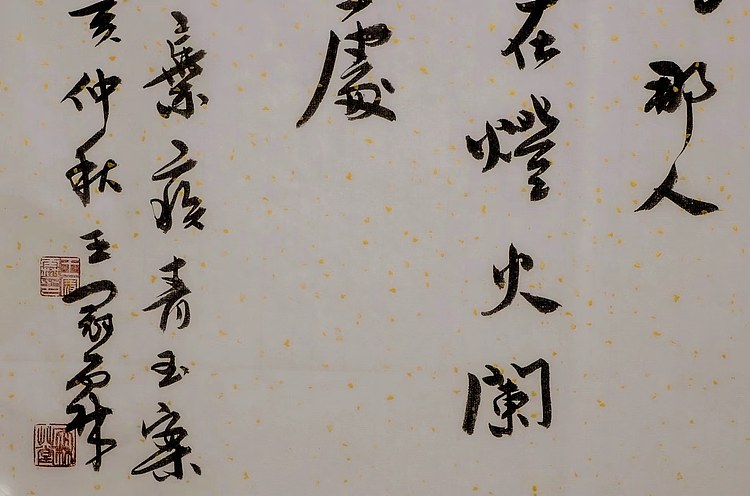 那人
在燈火闌
處
棄疾青玉案
亥仲秋王